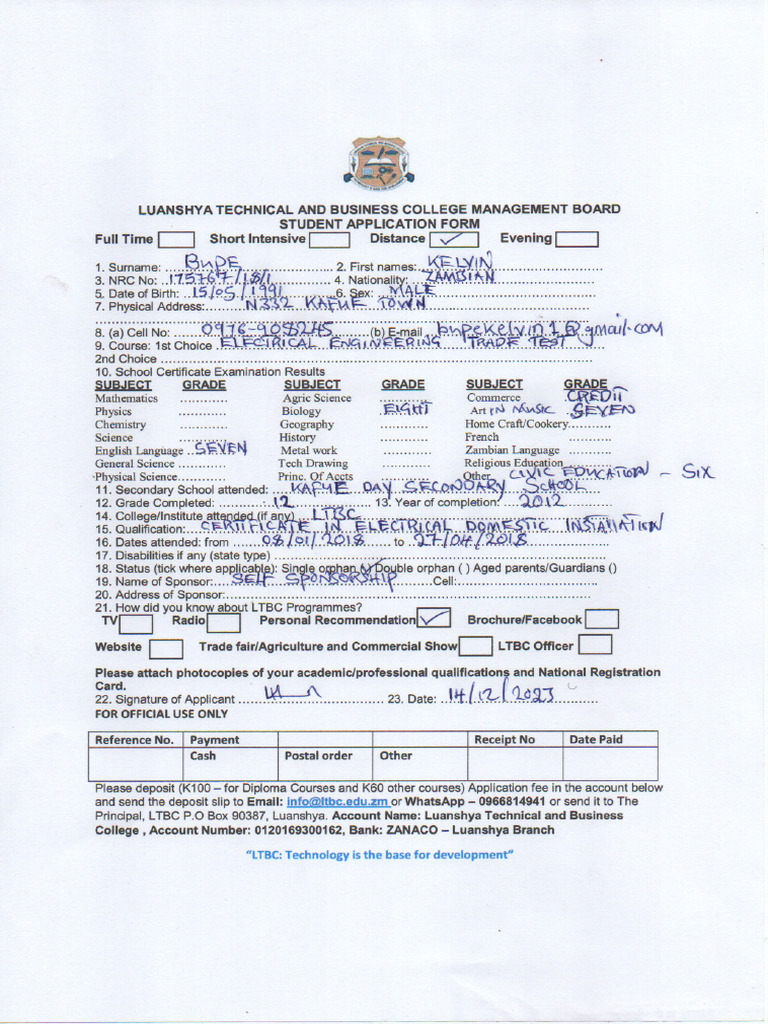 LUANSHYA TECHNICAL AND BUSINESS COLLEGE MANAGEMENT BOARD
STUDENT APPLICATION FORM
Full Time Short Intensive Distance ✓ Evening
1. Surname: BUPE 2. First names: KELVIN
3. NRC No: 175767/18/1 4. Nationality: ZAMBIAN
5. Date of Birth: 15/05/1991 6. Sex: MALE
7. Physical Address: N332 KAFUE TOWN
8. (a) Cell No: 0976-908245 (b) E-mail bupekelvin1@gmail.com
9. Course: 1st Choice ELECTRICAL ENGINEERING TRADE TEST
2nd Choice
10. School Certificate Examination Results
SUBJECT GRADE SUBJECT GRADE SUBJECT GRADE
Mathematics Agric Science Commerce CREDIT
Physics Biology EIGHT Art IN MUSIC SEVEN
Chemistry Geography Home Craft/Cookery
Science History French
English Language SEVEN Metal work Zambian Language
General Science Tech Drawing Religious Education
Physical Science Princ. Of Accts Other CIVIC EDUCATION - SIX
11. Secondary School attended: KAFUE DAY SECONDARY SCHOOL
12. Grade Completed: 12 13. Year of completion: 2012
14. College/Institute attended (if any) LTBC
15. Qualification: CERTIFICATE IN ELECTRICAL DOMESTIC INSTALLATION
16. Dates attended: from 08/01/2018 to 27/04/2018
17. Disabilities if any (state type)
18. Status (tick where applicable): Single orphan (✓) Double orphan ( ) Aged parents/Guardians ()
19. Name of Sponsor: SELF SPONSORSHIP Cell:
20. Address of Sponsor:
21. How did you know about LTBC Programmes?
TV Radio Personal Recommendation ✓ Brochure/Facebook
Website Trade fair/Agriculture and Commercial Show LTBC Officer
Please attach photocopies of your academic/professional qualifications and National Registration
Card.
22. Signature of Applicant 23. Date: 14/12/2023
FOR OFFICIAL USE ONLY
Reference No. Payment Receipt No Date Paid
Cash Postal order Other
Please deposit (K100 – for Diploma Courses and K60 other courses) Application fee in the account below
and send the deposit slip to Email: info@ltbc.edu.zm or WhatsApp – 0966814941 or send it to The
Principal, LTBC P.O Box 90387, Luanshya. Account Name: Luanshya Technical and Business
College , Account Number: 0120169300162, Bank: ZANACO – Luanshya Branch
“LTBC: Technology is the base for development”